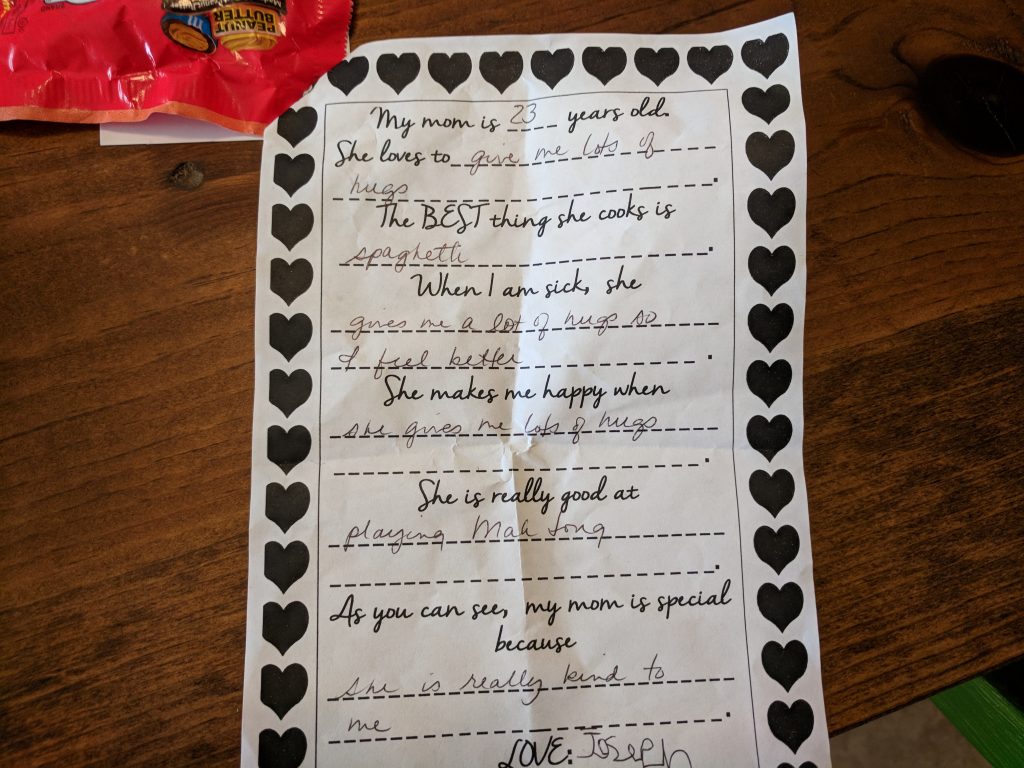 PEANUT
BUTTER
My mom is 23 years old.
She loves to give me lots of
hugs.
The BEST thing she cooks is
spaghetti.
When I am sick, she
gives me a lot of hugs so
I feel better.
She makes me happy when
she gives me lots of hugs
.
She is really good at
playing Mah Jong
.
As you can see, my mom is special
because
she is really kind to
me.
LOVE: JOSEPh